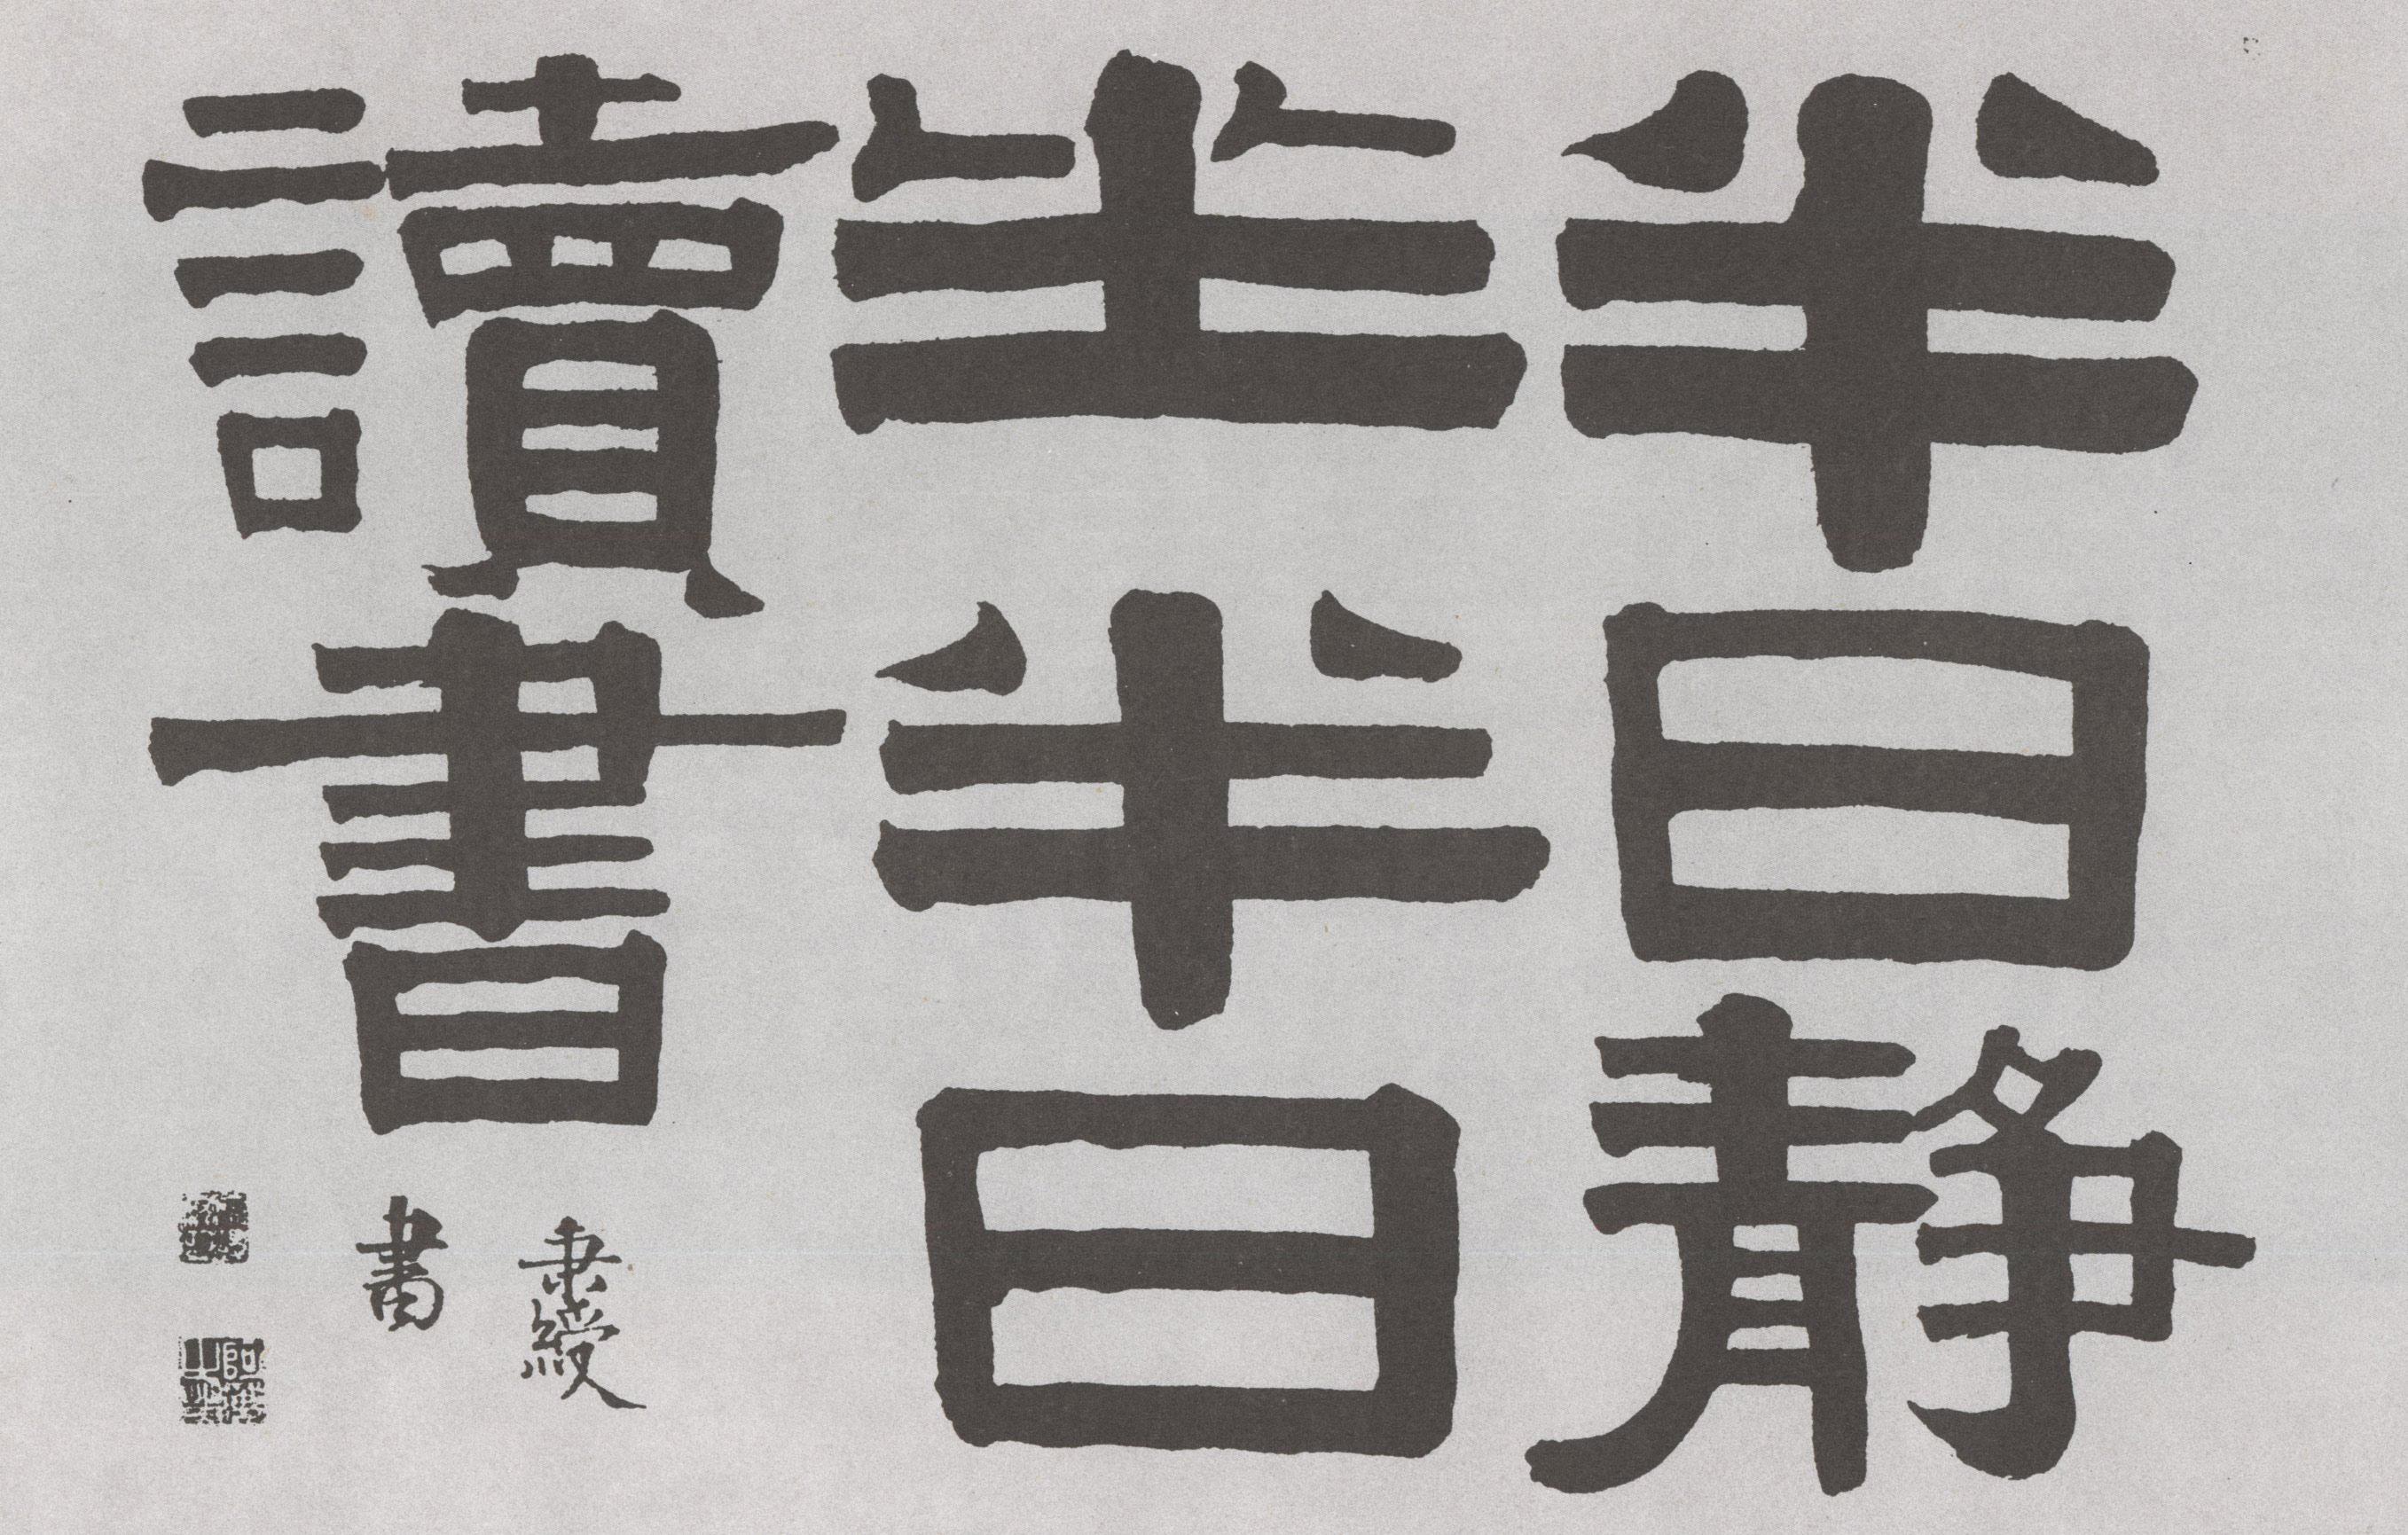 半日靜
坐半日
讀書
秉綬
書